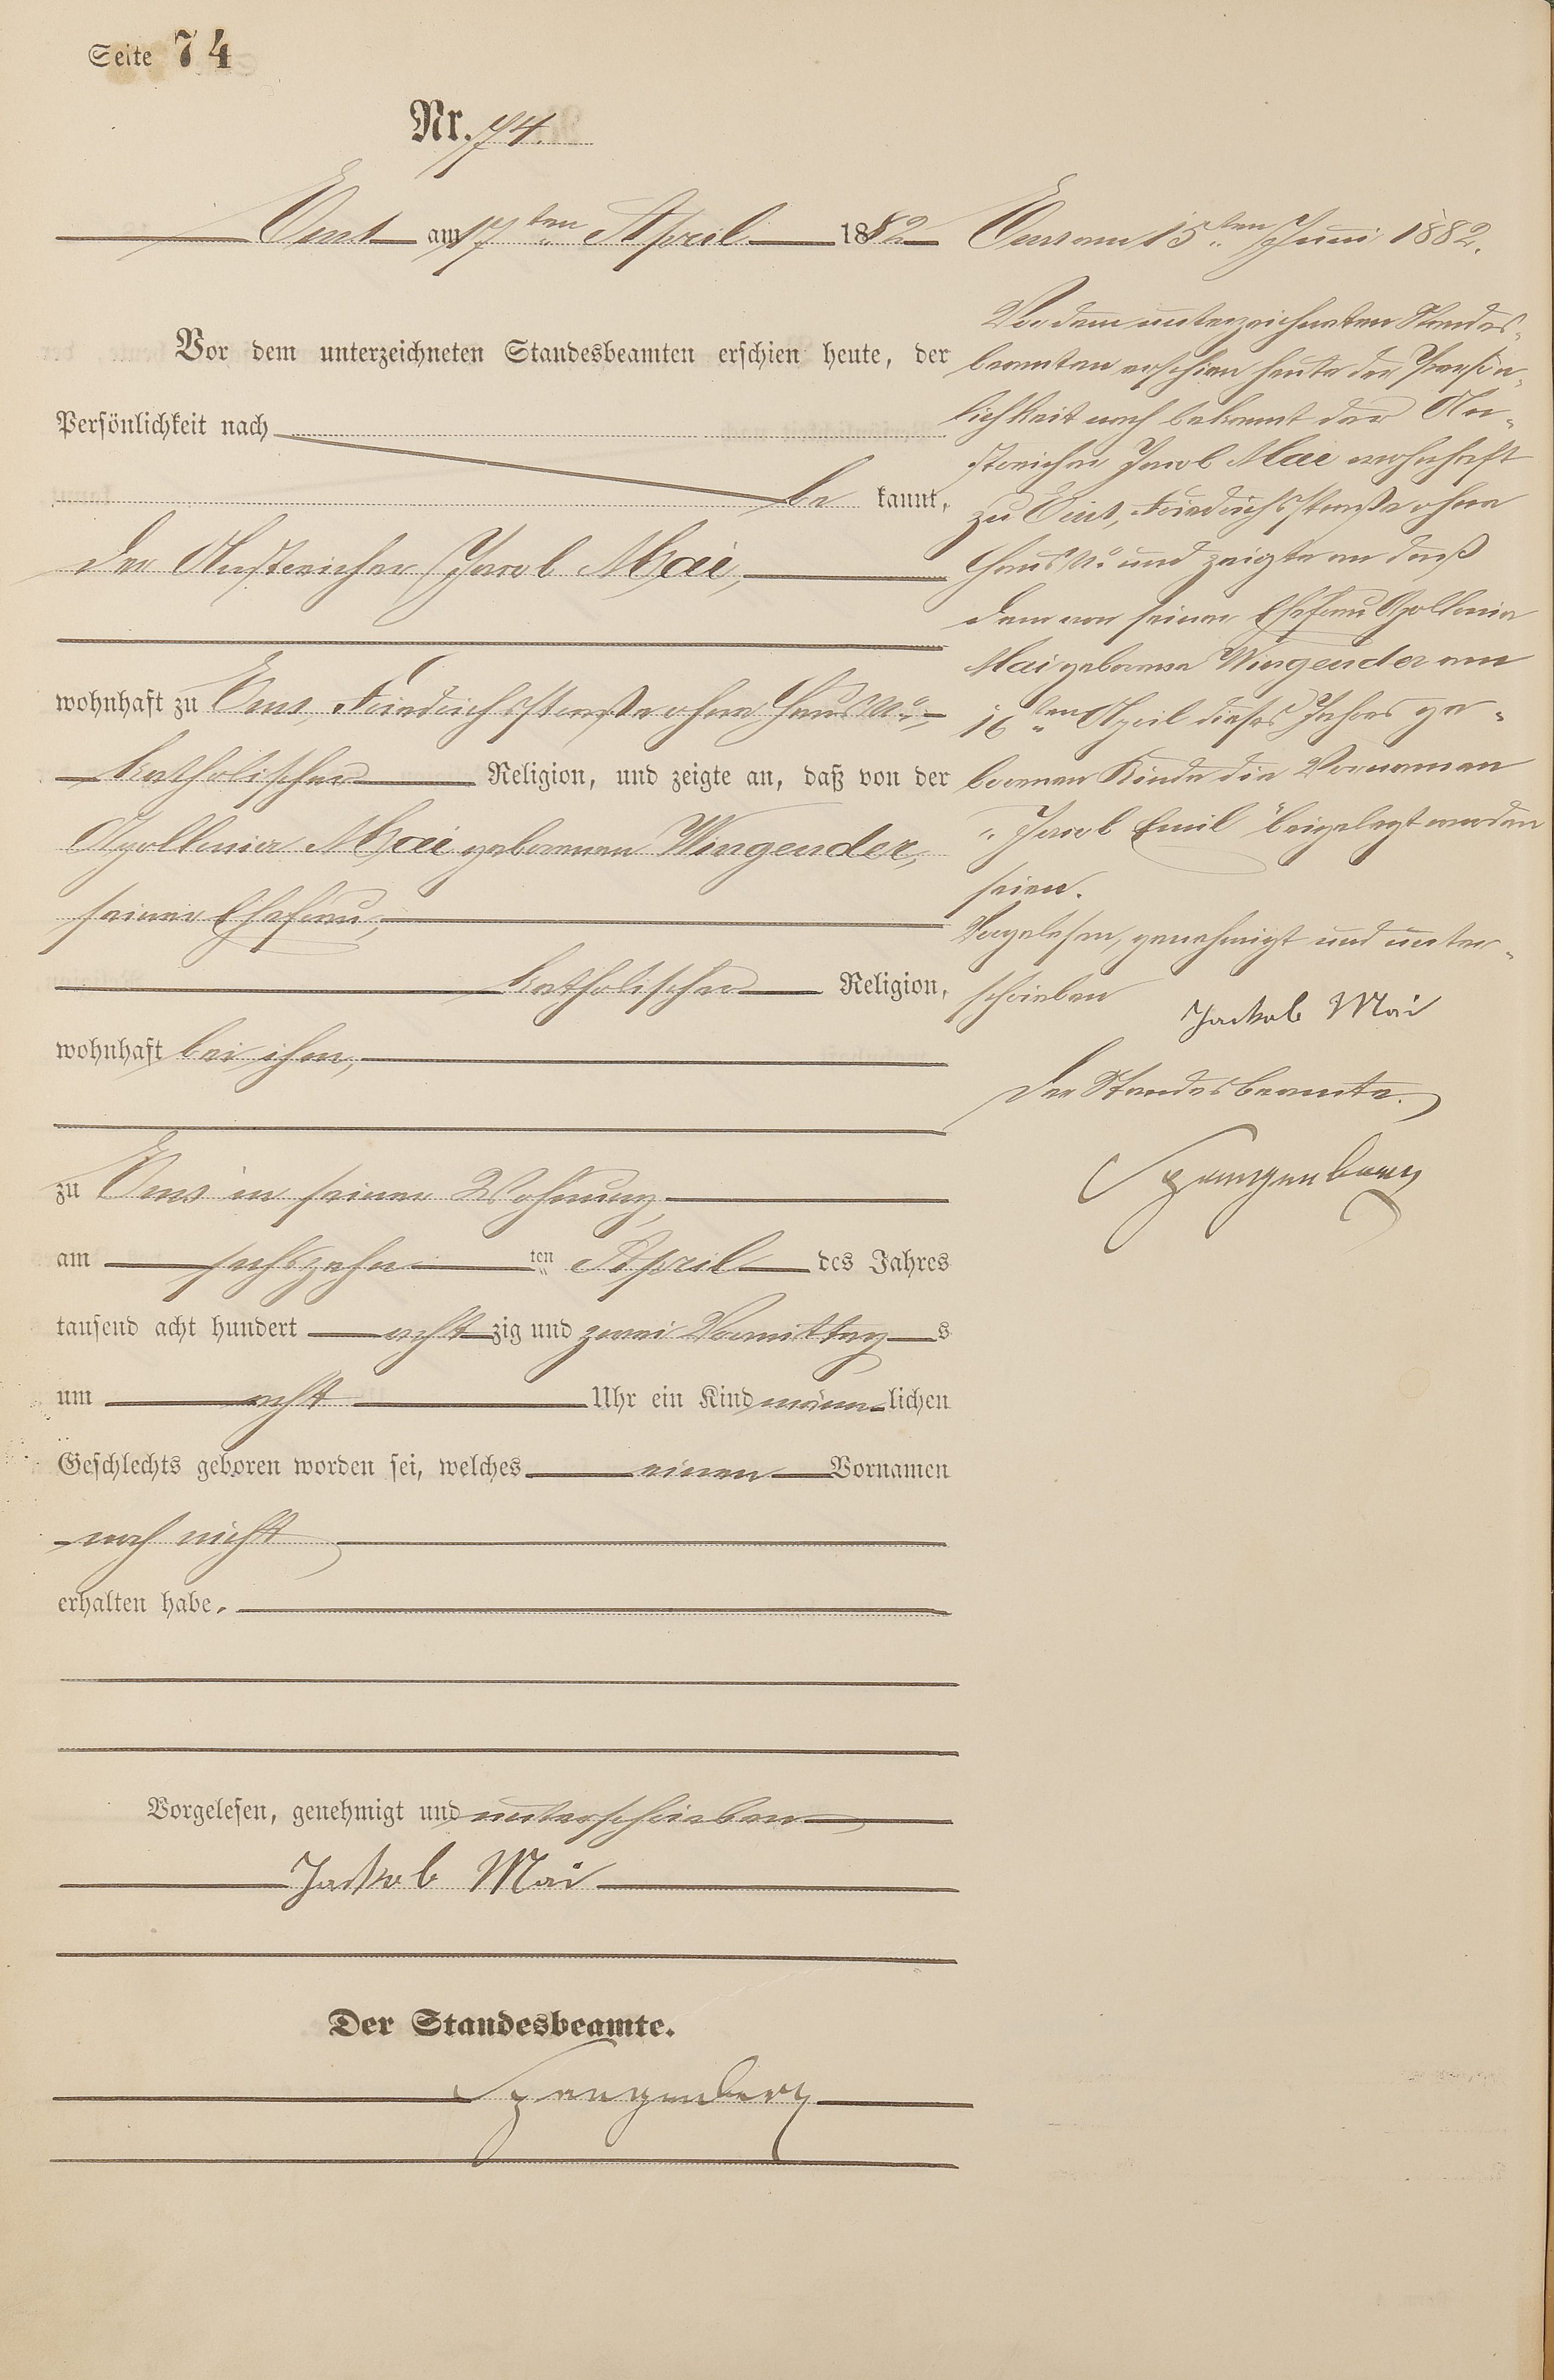 Seite 74
Nr. 74.
Ems am 17ten April 1882
Vor dem unterzeichneten Standesbeamten erschien heute, der
Persönlichkeit nach
be kannt,
der Anstreicher Jacob Mai,
wohnhaft zu Ems, Friedrichsstraße ohne Haus No.,
katholischer Religion, und zeigte an, daß von der
Apollonia Mai geborenen Wingender,
seiner Ehefrau,
katholischer Religion,
wohnhaft bei ihm,
zu Ems in seiner Wohnung,
am sechszehn ten April des Jahres
tausend acht hundert acht zig und zwei Vormittag s
um acht Uhr ein Kind männ lichen
Geschlechts geboren worden sei, welches einen Vornamen
noch nicht
erhalten habe.
Vorgelesen, genehmigt und unterschrieben
Jackob Mai
Der Standesbeamte.
Spangenberg
Ems am 15ten Juni 1882.
Vor dem unterzeichneten Standes-
beamten erschien heute der Persön-
lichkeit nach bekannt der An-
streicher Jacob Mai wohnhaft
zu Ems, Friedrichsstraße ohne
Haus No. und zeigte an daß
dem von seiner Ehefrau Apollonia
Mai geborene Wingender am
16ten April dieses Jahres ge-
borenen Kinde die Vornamen
"Jacob Emil" beigelegt worden
seien.
Vorgelesen, genehmigt und unter-
schrieben
Jackob Mai
Der Standesbeamte.
Spangenberg